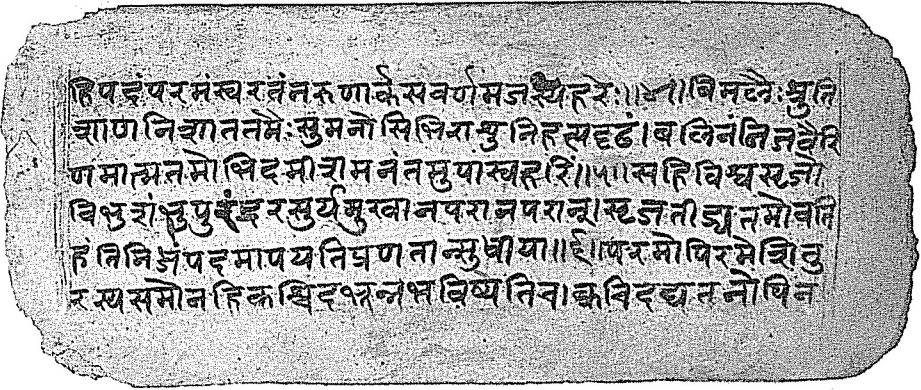 हिपदंपरमंस्वरतंतरुणार्कसवर्णमजस्यहरेः॥४॥विमलैःश्रुति
शाणनिशाततमैःसुमनोसिभिराशुनिहत्यदृढं।बलिनंनिजवैरि
णमात्मतमोभिदमीशमनंतमुपास्वहरिं॥५॥सहिविश्वसृजो
विभुशंभुपुरंदरसुर्यमुखानपरानपरान्।सृजतीड्यतमोवति
हंतिनिजंपदमापयतिप्रणतान्सुधीया॥६॥परमोपिरमेशितु
रस्यसमोनहिकश्चिदभून्नभविष्यतिच।क्वचिदद्यतनोपिन